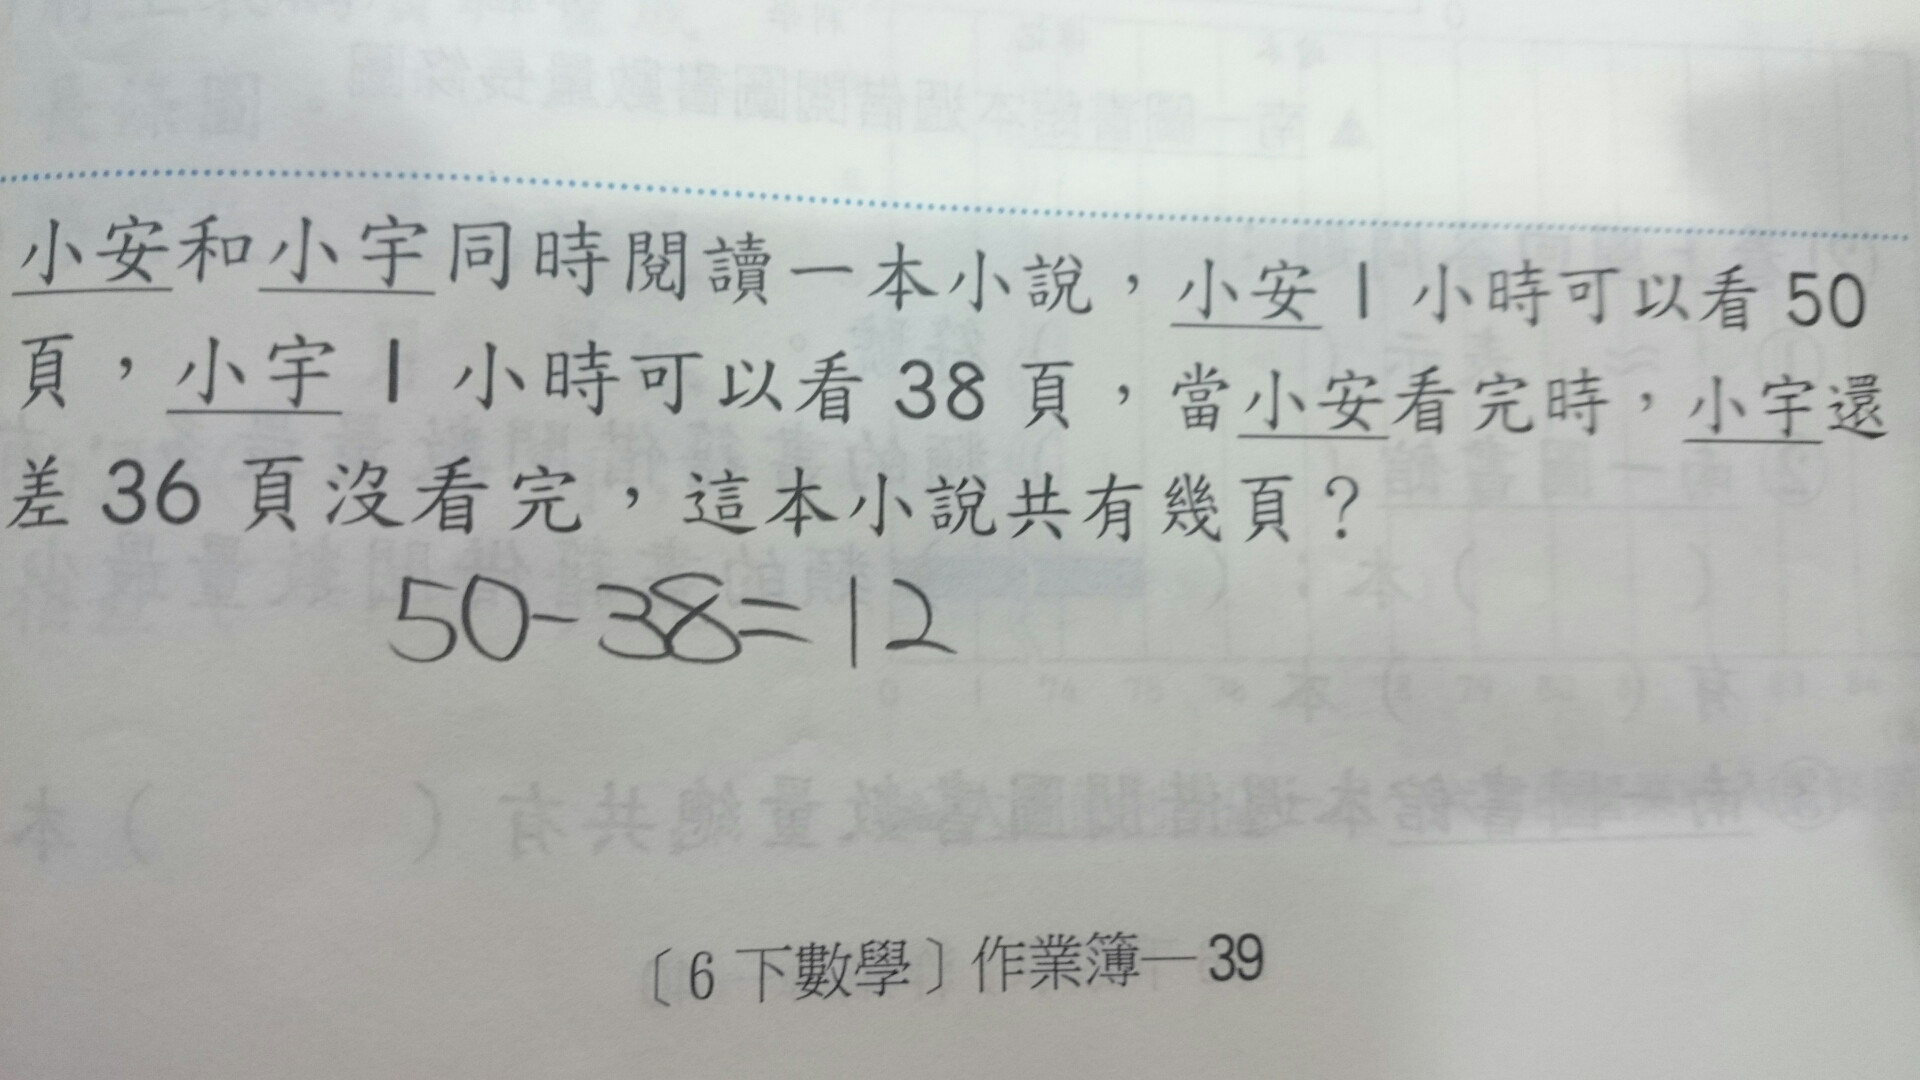 小安和小宇同時閱讀一本小說，小安1小時可以看50
頁，小宇1小時可以看38頁，當小安看完時，小宇還
差36頁沒看完，這本小說共有幾頁？
50-38=12
〔6下數學〕作業簿—39